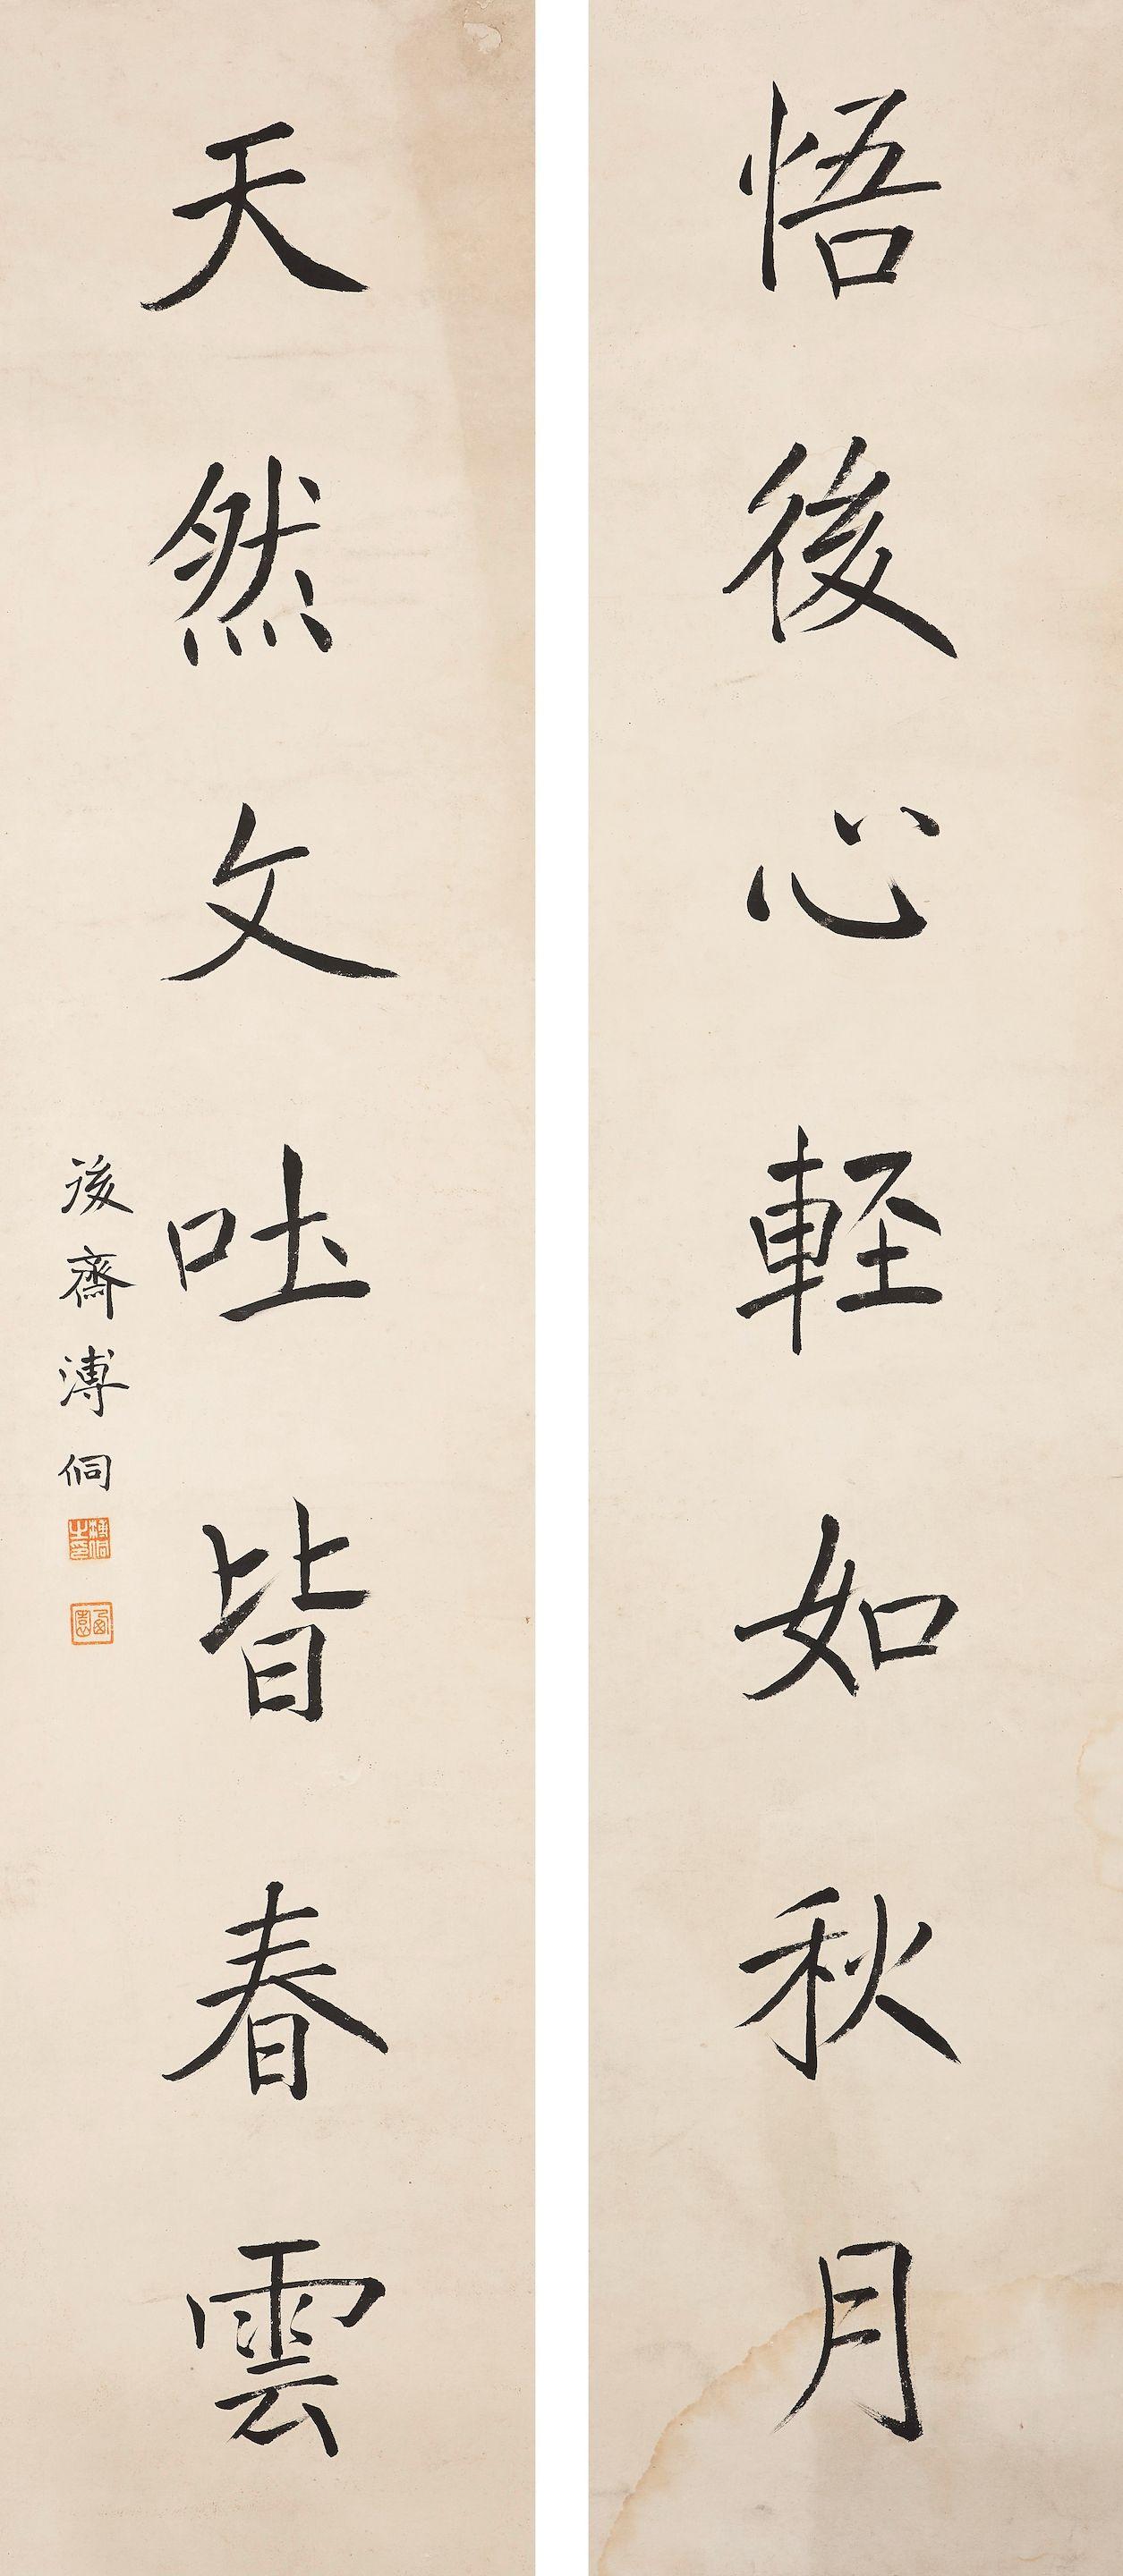 悟後心輕如秋月
天然文吐皆春雲
後齋溥侗
溥侗之印